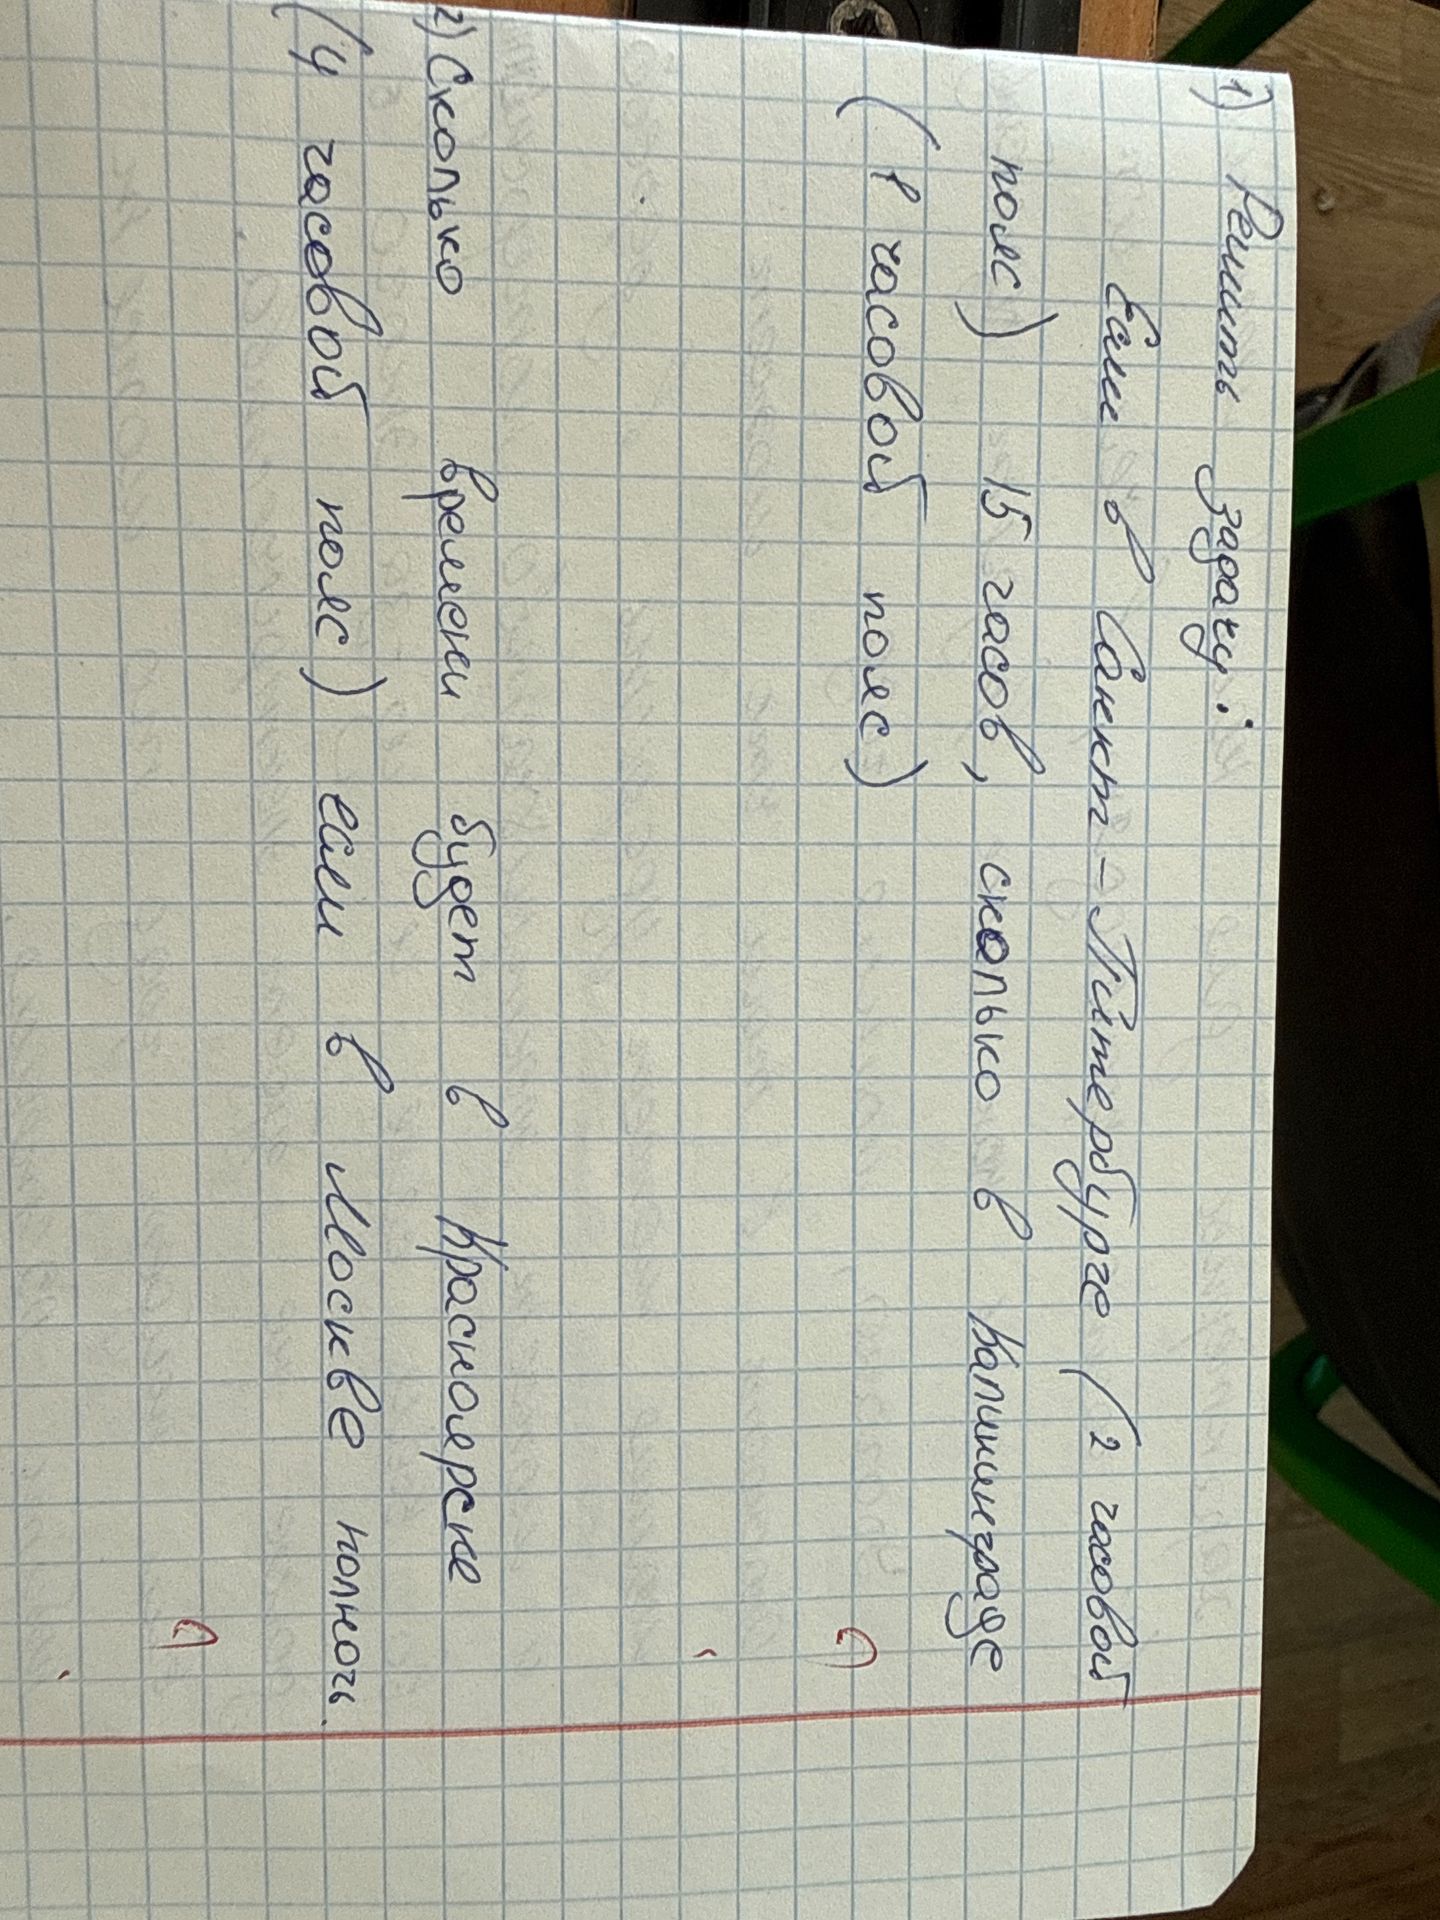 1) Решить задачу:
Если в Санкт-Питербурге (2 часовой
пояс) 15 часов, сколько в Калининграде
(1 часовой пояс)
2) Сколько времени будет в Красноярске
(4 часовой пояс) если в Москве полночь.